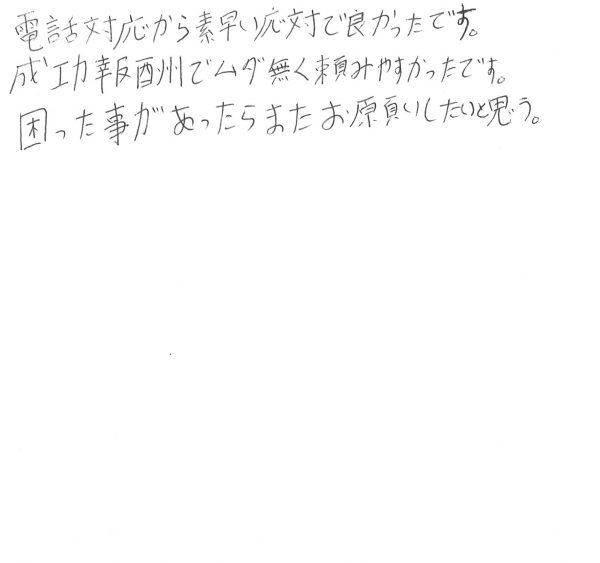 電話対応から素早い応対で良かったです。
成功報酬でムダ無く頼みやすかったです。
困った事があったらまたお願いしたいと思う。